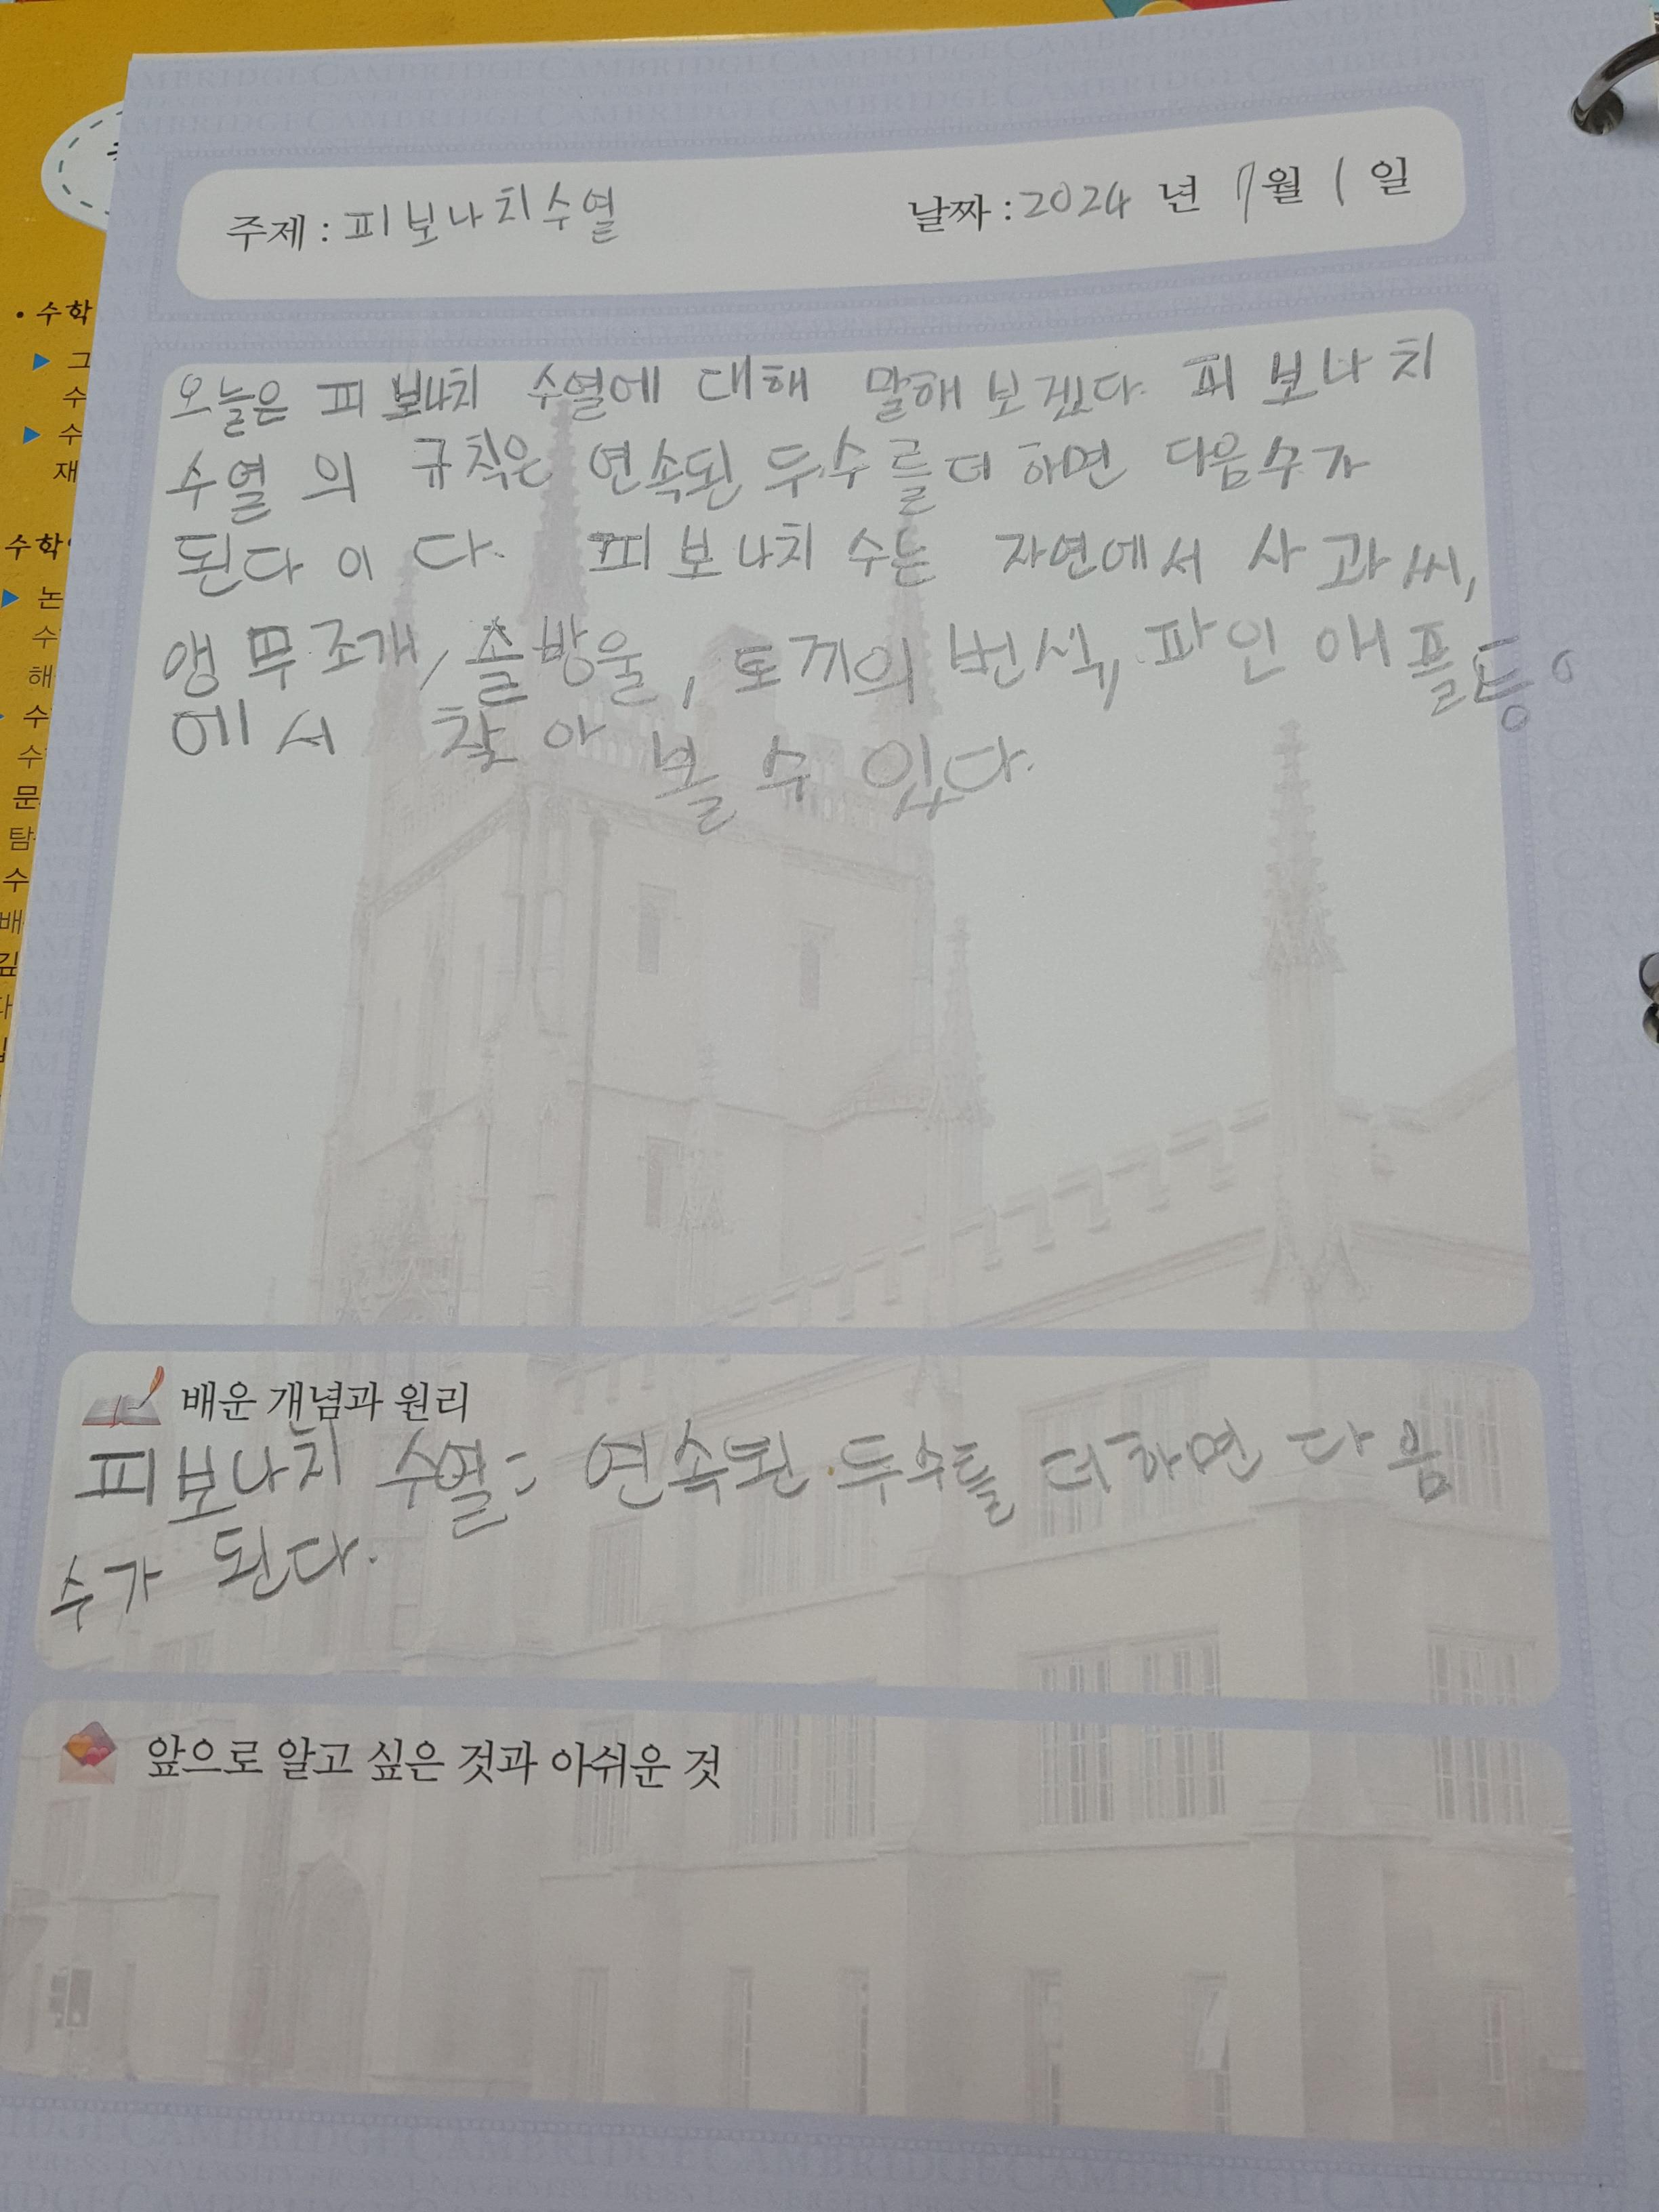 주제 : 피보나치수열 날짜 : 2024 년 7월 1 일
오늘은 피보나치 수열에 대해 말해 보겠다. 피보나치
수열의 규칙은 연속된 두수를 더하면 다음수가
된다 이다. 피보나치 수는 자연에서 사과씨,
앵무조개, 솔방울, 토끼의 번식, 파인애플등
에서 찾아 볼 수 있다.
배운 개념과 원리
피보나치 수열: 연속된 두수를 더하면 다음
수가 된다.
앞으로 알고 싶은 것과 아쉬운 것
• 수학
▶ 그
수
▶ 수
재
수학
▶ 논
수
해
수
수
문
탐
수
배
깊